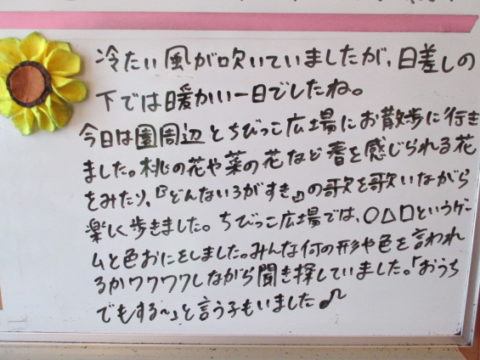 冷たい風が吹いていましたが、日差しの
下では暖かい一日でしたね。
今日は園周辺とちびっこ広場にお散歩に行き
ました。桃の花や菜の花など春を感じられる花
をみたり、『どんないろがすき』の歌を歌いながら
楽しく歩きました。ちびっこ広場では、〇△□というゲー
ムと色おにをしました。みんな何の形や色を言われ
るかワクワクしながら聞き探していました。「おうち
でもする〜」と言う子もいました♪